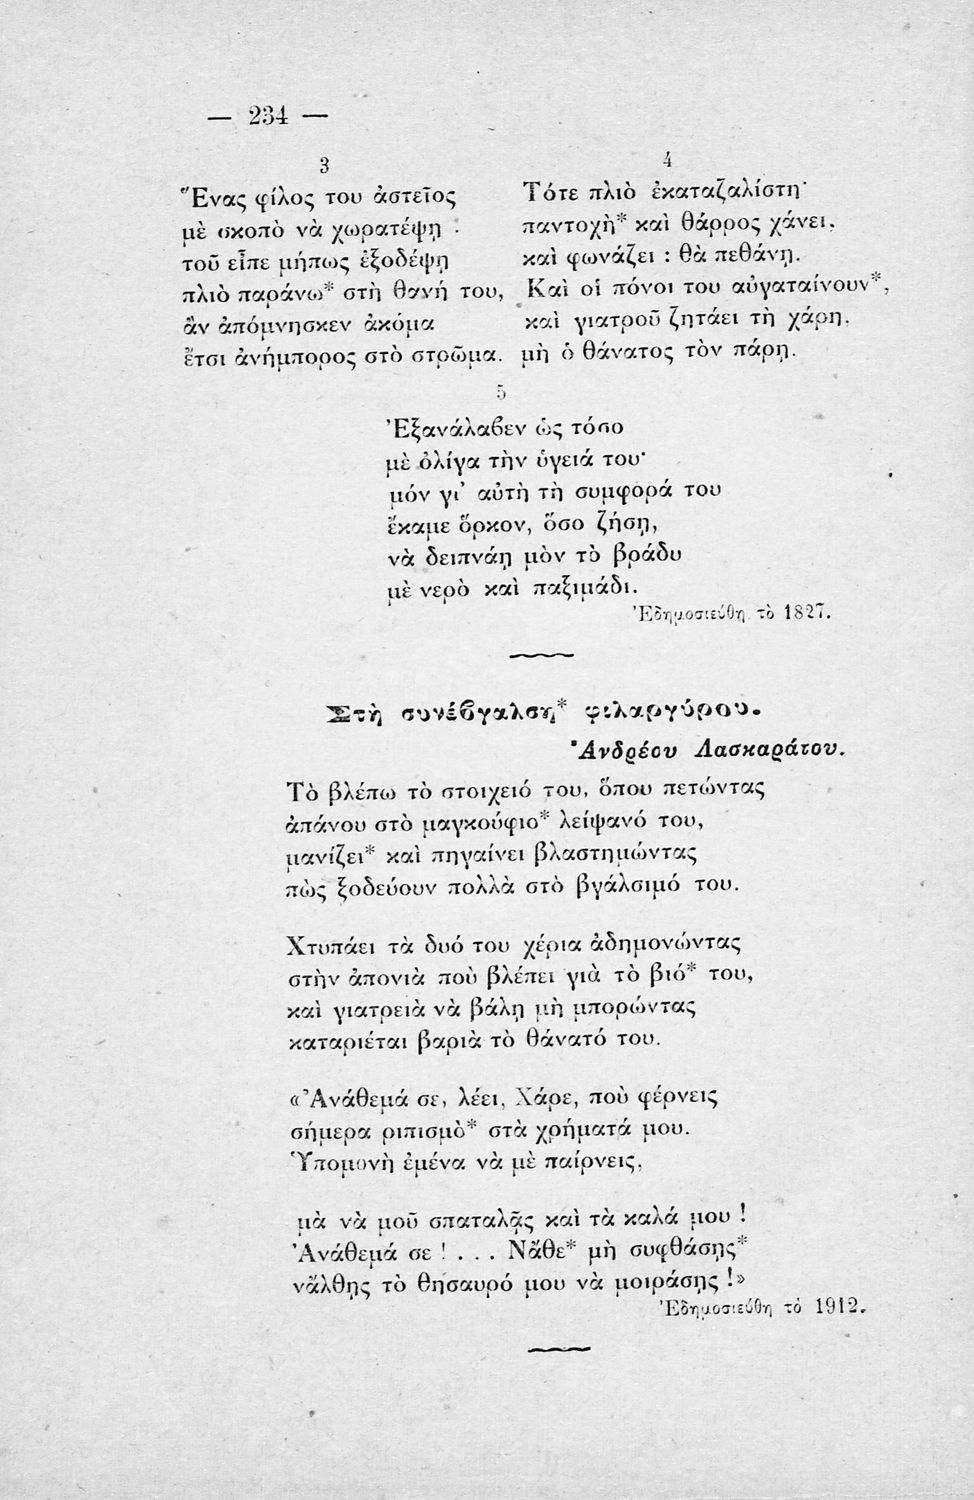 — 234 —
3
Ἕνας φίλος του ἀστεῖος
μὲ σκοπὸ νὰ χωρατέψῃ :
τοῦ εἶπε μήπως ἐξοδέψῃ
πλιὸ παράνω* στὴ θανή του,
ἂν ἀπόμνησκεν ἀκόμα
ἔτσι ἀνήμπορος στὸ στρῶμα.
4
Τότε πλιὸ ἐκαταζαλίστη·
παντοχὴ* καὶ θάρρος χάνει,
καὶ φωνάζει : θὰ πεθάνῃ.
Καὶ οἱ πόνοι του αὐγαταίνουν*,
καὶ γιατροῦ ζητάει τὴ χάρη,
μὴ ὁ θάνατος τὸν πάρῃ.
5
Ἐξανάλαβεν ὡς τόσο
μὲ ὀλίγα τὴν ὑγειά του·
μόν γι' αὐτὴ τὴ συμφορά του
ἔκαμε ὅρκον, ὅσο ζήσῃ,
νὰ δειπνάῃ μὸν τὸ βράδυ
μὲ νερὸ καὶ παξιμάδι.
Ἐδημοσιεύθη τὸ 1827.
Στὴ συνέβγαλση* φιλαργύρου.
Ἀνδρέου Λασκαράτου.
Τὸ βλέπω τὸ στοιχειό του, ὅπου πετώντας
ἀπάνου στὸ μαγκούφιο* λείψανό του,
μανίζει* καὶ πηγαίνει βλαστημώντας
πὼς ξοδεύουν πολλὰ στὸ βγάλσιμό του.
Χτυπάει τὰ δυό του χέρια ἀδημονώντας
στὴν ἀπονιὰ ποὺ βλέπει γιὰ τὸ βιό* του,
καὶ γιατρειὰ νὰ βάλῃ μὴ μπορώντας
καταριέται βαριὰ τὸ θάνατό του.
«Ἀνάθεμά σε, λέει, Χάρε, ποὺ φέρνεις
σήμερα ριπισμὸ* στὰ χρήματά μου.
Ὑπομονὴ ἐμένα νὰ μὲ παίρνεις,
μὰ νὰ μοῦ σπαταλᾷς καὶ τὰ καλά μου !
Ἀνάθεμά σε ! . . . Νἄθε* μὴ συφθάσῃς*
νἄλθῃς τὸ θησαυρό μου νὰ μοιράσῃς !»
Ἐδημοσιεύθη τὸ 1912.